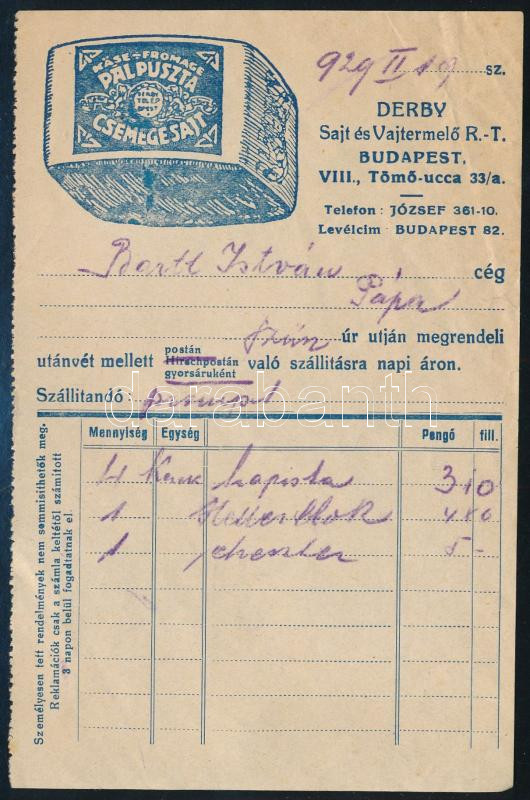 KÄSE-FROMAGE
PÁLPUSZTA
CSEMEGESAJT
929 II 19 sz.
DERBY
Sajt és Vajtermelő R.-T.
BUDAPEST,
VIII., Tömő-ucca 33/a.
Telefon: JÓZSEF 361-10.
Levélcim: BUDAPEST 82.
Bartl István cég
Pápa
úr utján megrendeli
utánvét mellett postán Hirschpostán gyorsáruként való szállitásra napi áron.
Szállitandó:
darabanth
Személyesen tett rendelmények nem semmisíthetők meg.
Reklamációk csak a számla keltétől számított
3 napon belül fogadtatnak el.
Mennyiség Egység Pengő fill.
4 3 10
1 4
1 5 –